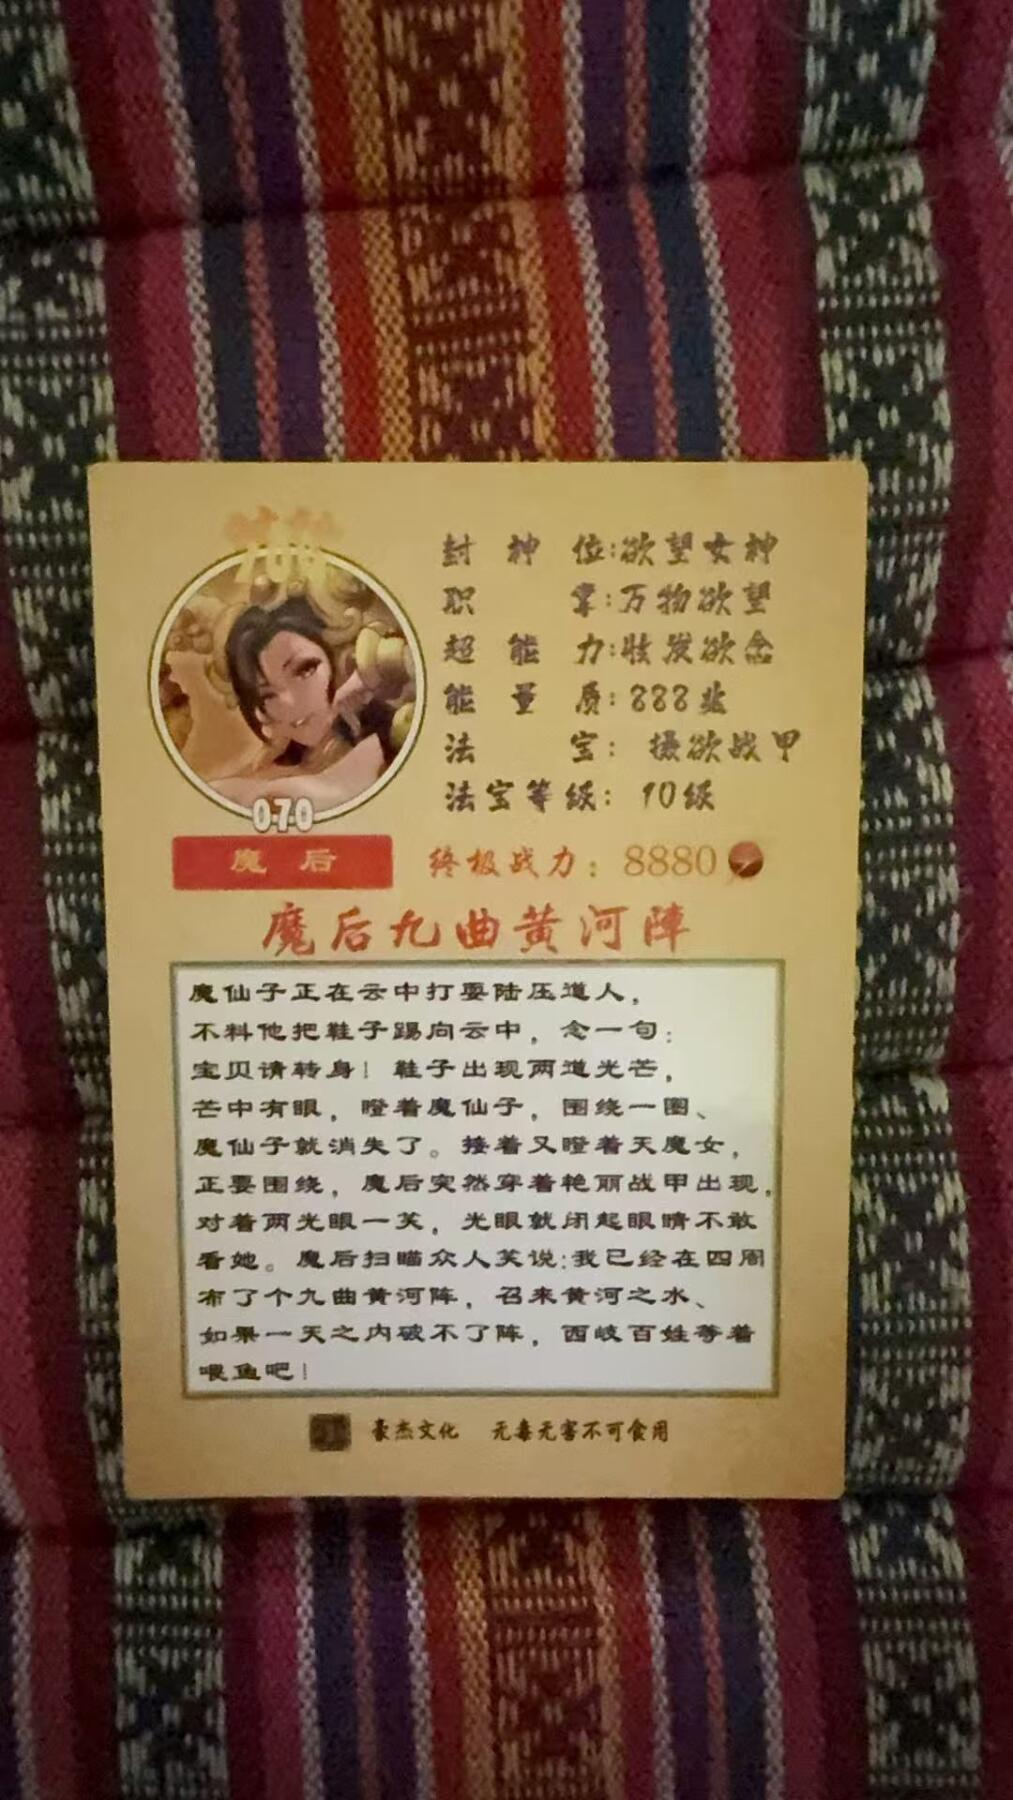 封神位:欲望女神
职掌:万物欲望
超能力:欲念
能量质:888兆
法宝: 摄欲战甲
法宝等级: 10级
070
魔后
终极战力: 8880
魔后九曲黄河陣
魔仙子正在云中打耍陆压道人,
不料他把鞋子踢向云中, 念一句:
宝贝请转身! 鞋子出现两道光芒,
芒中有眼, 瞪着魔仙子, 围绕一圈、
魔仙子就消失了。接着又瞪着天魔女,
正要围绕, 魔后突然穿着艳丽战甲出现,
对着两光眼一笑, 光眼就闭起眼睛不敢
看她。魔后扫瞄众人笑说:我已经在四周
布了个九曲黄河阵, 召来黄河之水、
如果一天之内破不了阵, 西岐百姓等着
喂鱼吧!
豪杰文化 无毒无害不可食用